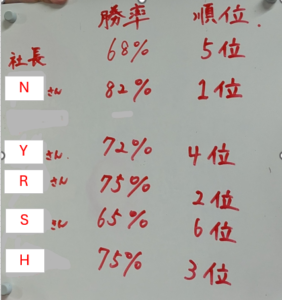 勝率 順位.
社長 68% 5位
Nさん 82% 1位
Yさん. 72% 4位
Rさん 75% 2位
Sさん 65% 6位
H 75% 3位